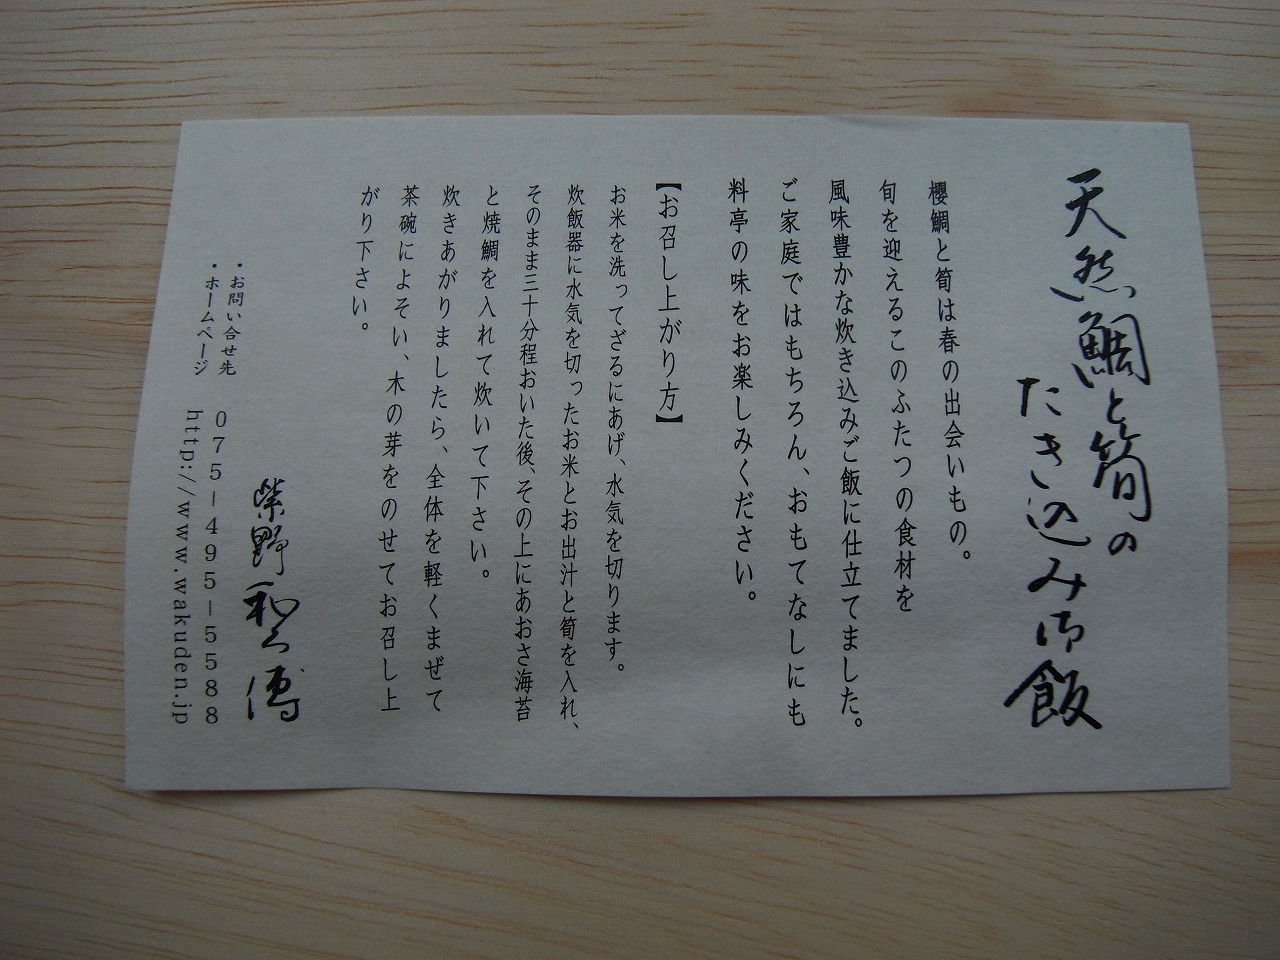 天然鯛と筍の
たき込み御飯
櫻鯛と筍は春の出会いもの。
旬を迎えるこのふたつの食材を
風味豊かな炊き込みご飯に仕立てました。
ご家庭ではもちろん、おもてなしにも
料亭の味をお楽しみください。
【お召し上がり方】
お米を洗ってざるにあげ、水気を切ります。
炊飯器に水気を切ったお米とお出汁と筍を入れ、
そのまま三十分程おいた後、その上にあおさ海苔
と焼鯛を入れて炊いて下さい。
炊きあがりましたら、全体を軽くまぜて
茶碗によそい、木の芽をのせてお召し上
がり下さい。
紫野和久傳
・お問い合せ先 075-495-5588
・ホームページ http://www.wakuden.jp